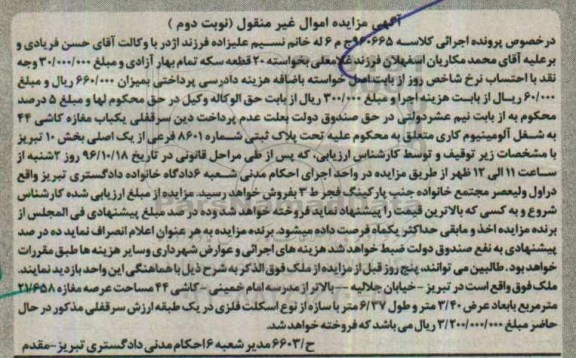 آگهی مزایده اموال غیر منقول (نوبت دوم )
درخصوص پرونده اجرائی کلاسه ۹۶۰۶۶۵ج م ۶ له خانم نسیم علیزاده فرزند اژدر با وکالت آقای حسن فریادی و
برعلیه آقای محمد مکاریان اسفهلان فرزند غلامعلی بخواسته ۲۰ قطعه سکه تمام بهار آزادی و مبلغ ۳۰/۰۰۰/۰۰۰ وجه
نقد با احتساب نرخ شاخص روز از بابت اصل خواسته باضافه هزینه دادرسی پرداختی بمیزان ۶۶۰/۰۰۰ ریال و مبلغ
۶۰/۰۰۰ ریـال از بابت هزینه اجرا و مبلغ ۳۰۰/۰۰۰ ریال از بابت حق الوکاله وکیل در حق محکوم لها و مبلغ ۵ درصد
محکوم به از بابت نیم عشردولتی در حق صندوق دولت بعلت عدم پرداخت دین سرقفلی یکباب مغازه کاشی ۴۴
به شـغل آلومینیوم کاری متعلق به محکوم علیه تحت پلاک ثبتی شـماره ۸۶۰۱ فرعی از یک اصلی بخش ۱۰ تبریز
با مشخصات زیر توقیف و توسط کارشناس ارزیابی، که پس از طی مراحل قانونی در تاریخ ۹۶/۱۰/۱۸ روز ۲شنبه از
ساعت ۱۱ الی ۱۲ ظهر از طریق مزایده در واحد اجرای احکام مدنی شـعبه ۶دادگاه خانواده دادگستری تبریز واقع
دراول ولیعصر مجتمع خانواده جنب پارکینگ فجر ط ۳ بفروش خواهد رسید. مزایده از مبلغ ارزیابی شده کارشناس
شروع و به کسی که بالاترین قیمت را پیشنهاد نماید فروخته خواهد شد وده در صد مبلغ پیشنهادی فی المجلس از
برنده مزایده اخذ و مابقی حداکثر یکماه فرصت داده میشود. برنده مزایده به هر عنوان اعلام انصراف نماید ده در صد
پیشنهادی به نفع صندوق دولت ضبط خواهد شد هزینه های اجرائی و عوارض شهرداری وسایر هزینه ها طبق مقررات
خواهد بود. طالبین می توانند، پنج روز قبل از مزایده از ملک فوق الذکر به شرح ذیل با هماهنگی این واحد بازدید نمایند.
ملک فوق واقع است در تبریز - خیابان جلالیه —بالاتر از مدرسه امام خمینی -کاشی ۴۴ مساحت عرصه مغازه ۲۱/۶۵۸
مترمربع باابعاد عرض ۳/۴۰ متر و طول ۶/۳۷ متر با سازه از نوع اسکلت فلزی در یک طبقه ارزش سرقفلی مذکور در حال
حاضر مبلغ ۳/۲۰۰/۰۰۰/۰۰۰ ریال می باشد که فروخته خواهد شد.
ح/۶۶۰۳ مدیر شعبه ۶ احکام مدنی دادگستری تبریز-مقدم